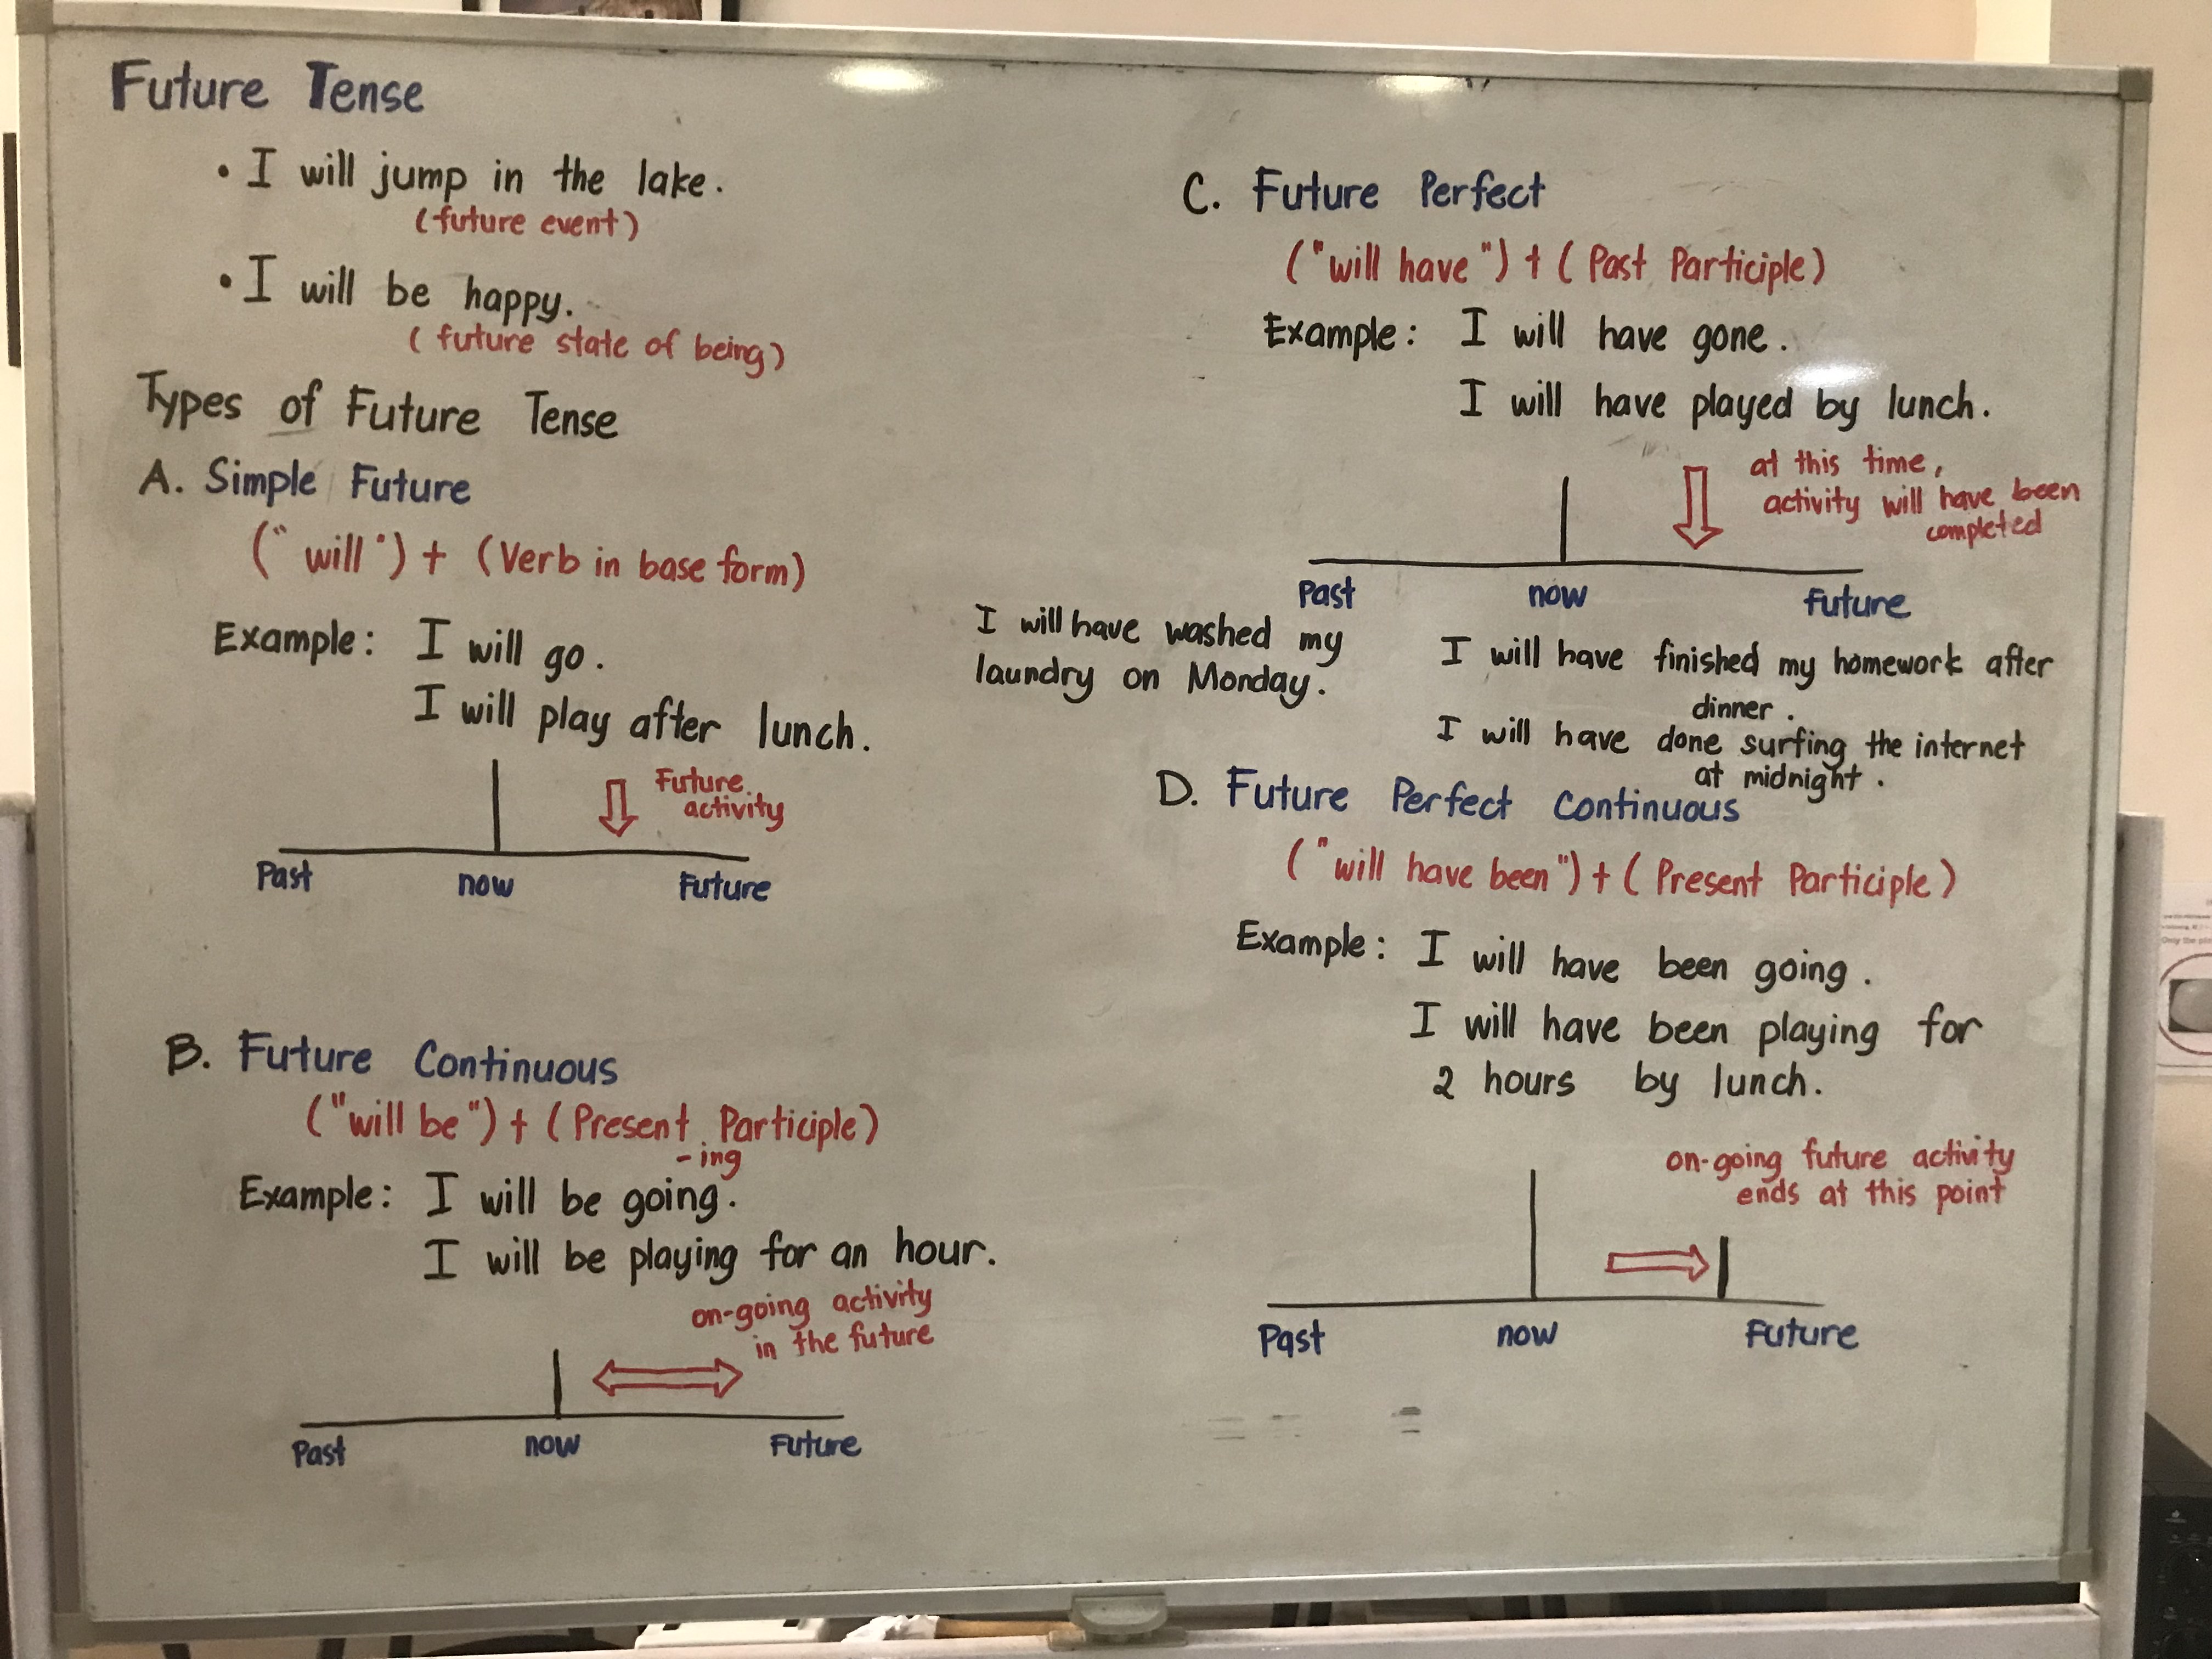 Future Tense
• I will jump in the lake.
(future event)
• I will be happy.
(future state of being)
Types of Future Tense
A. Simple Future
("will") + (Verb in base form)
Example: I will go.
I will play after lunch.
Future
activity
Past now Future
B. Future Continuous
("will be") + (Present Participle)
-ing
Example: I will be going.
I will be playing for an hour.
on-going activity
in the future
Past now Future
C. Future Perfect
("will have") + (Past Participle)
Example: I will have gone.
I will have played by lunch.
at this time,
activity will have been
completed
Past now Future
I will have washed my
laundry on Monday.
I will have finished my homework after
dinner.
I will have done surfing the internet
at midnight.
D. Future Perfect Continuous
("will have been") + (Present Participle)
Example: I will have been going.
I will have been playing for
2 hours by lunch.
on-going future activity
ends at this point
Past now Future